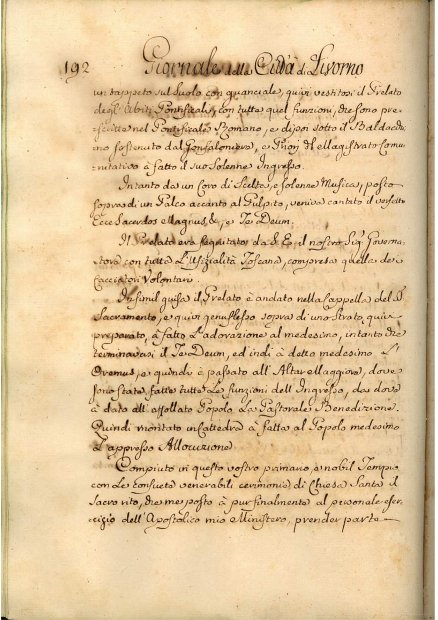 192 Giornale della Città di Livorno
un tappeto sul suolo con quanciale, quivi vestitosi il Prelato
degl'Abiti Pontificali con tutte quel funzioni, che sono pre-
scritte nel Pontificale Romano, e dipoi sotto il Baldacchi-
no sostenuto dal Gonfaloniere, e Priori del Magistrato Comu-
nitativo à fatto il suo Solenne Ingresso.
Intanto da un Coro di Scelta, e solenne Musica, posto
sopra di un Palco accanto al Pulpito, veniva cantato il versetto
Ecce Sacerdos Magnus, &, e Te Deum.
Il Prelato era seguitato da S. E. il nostro Sig. Governa-
tore con tutta l'Ufizialità Toscana, compresa quella de
Cacciatori Volontari.
Di simil guisa il Prelato è andato nella Cappella del S.
Sacramento, e quivi genuflesso sopra di uno Strato, quivi
preparato, à fatto l'adorazione al medesimo, intanto che
terminavasi il Te Deum, ed indi à detto medesimo l'
Oremus, e quindi è passato all'Altar Maggiore, dove
sono state fatte tutte le funzioni dell'Ingresso, da dove
à dato all'affollato Popolo la Pastorale Benedizione.
Quindi montato in Cattedra à fatta al Popolo medesimo
l'appresso Allocuzione
Compiuto in questo vostro primario, e nobil Tempio
con le consuete venerabili cerimonie di Chiesa Santa il
Sacro rito, che me posto à pur finalmente al personale eser-
cizio dell'Apostolico mio Ministero, prender parte